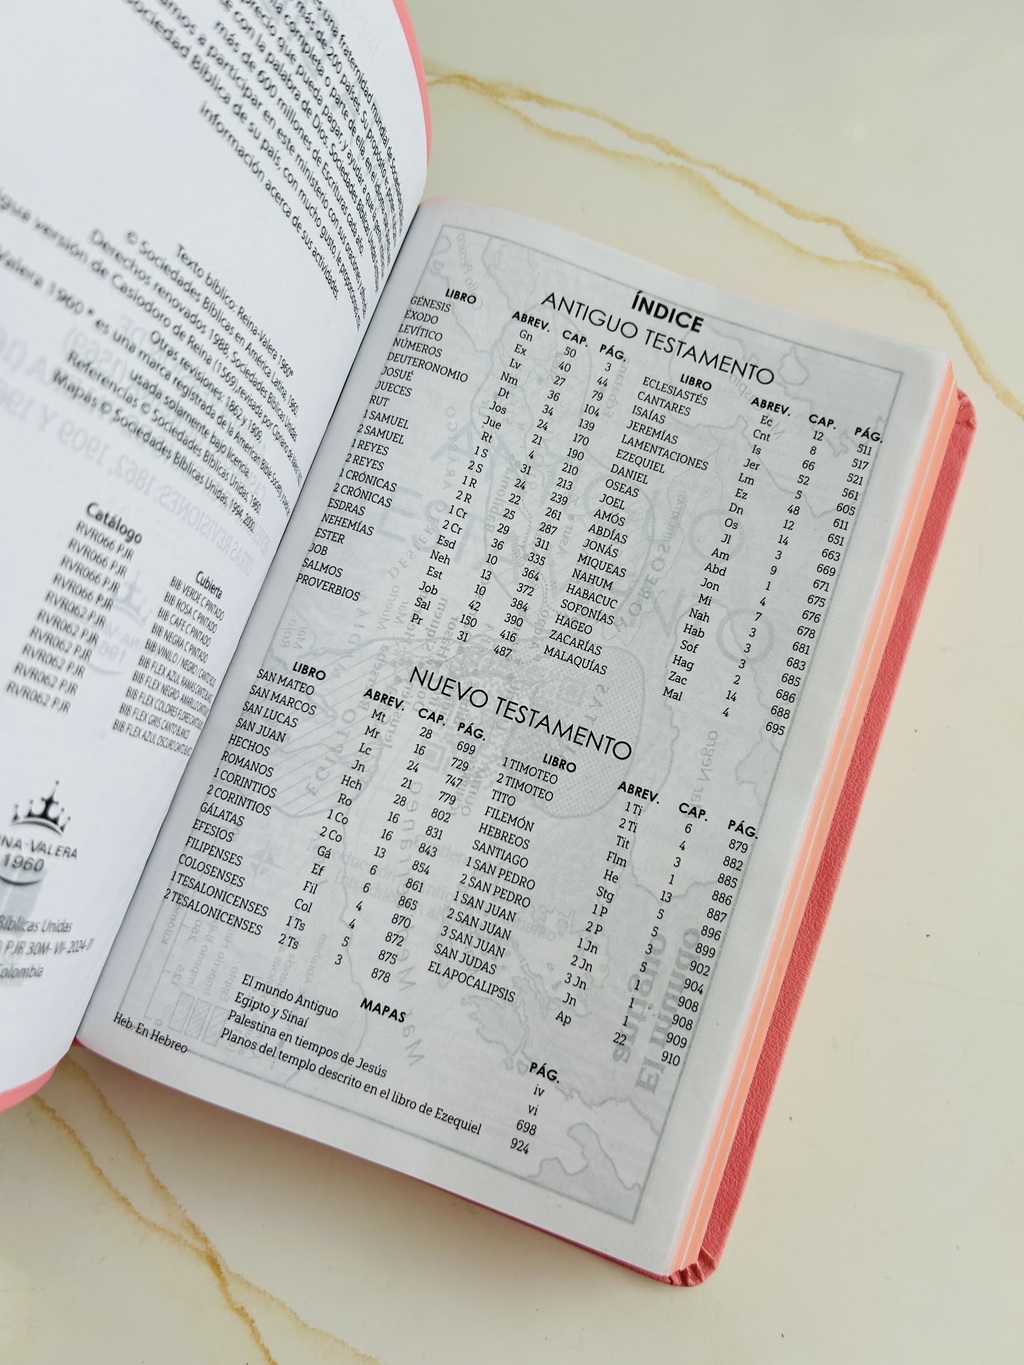 una fraternidad mundial de Sociedades
más de 200 países. Su propósito es poner
completa o parte de ella, en el idioma
precio que pueda pagar, y ayudar a que
con la palabra de Dios. Sociedades Bíblicas Unidas
más de 600 millones de Escrituras cada año.
amos a participar en este ministerio con sus oraciones y
Sociedad Bíblica de su país, con mucho gusto, le proporcionará
información acerca de sus actividades.
Texto bíblico: Reina-Valera 1960®
© Sociedades Bíblicas en América Latina, 1960.
Derechos renovados 1988, Sociedades Bíblicas Unidas.
igua versión de Casiodoro de Reina (1569), revisada por Cipriano de Valera
Otras revisiones: 1862 y 1909.
Valera 1960 ® es una marca registrada de la American Bible Society
usada solamente bajo licencia.
Referencias © Sociedades Bíblicas Unidas, 1960.
Mapas © Sociedades Bíblicas Unidas, 1994, 2000.
Catálogo Cubierta
RVR066 PJR BIB VERDE C PINTADO
RVR066 PJR BIB ROSA C PINTADO
RVR066 PJR BIB CAFE C PINTADO
RVR066 PJR BIB NEGRA C PINTADO
RVR062 PJR BIB VINILO NEGRO CANTO BL
RVR062 PJR BIB FLEX AZUL RAMAS CANTO BL
RVR062 PJR BIB FLEX NEGRO AMARILL CANTO
RVR062 PJR BIB FLEX COLORES FLORES CANTO
RVR062 PJR BIB FLEX GRIS CANTO BLANCO
RVR062 PJR BIB FLEX AZUL OSCURO CANTO BL
INA-VALERA
1960
Bíblicas Unidas
PJR 30M- VII-2024-01
Colombia
ÍNDICE
ANTIGUO TESTAMENTO
LIBRO ABREV. CAP. PÁG.
GÉNESIS Gn 50 3
ÉXODO Ex 40 44
LEVÍTICO Lv 27 79
NÚMEROS Nm 36 104
DEUTERONOMIO Dt 34 139
JOSUÉ Jos 24 170
JUECES Jue 21 190
RUT Rt 4 210
1 SAMUEL 1 S 31 213
2 SAMUEL 2 S 24 239
1 REYES 1 R 22 261
2 REYES 2 R 25 287
1 CRÓNICAS 1 Cr 29 311
2 CRÓNICAS 2 Cr 36 335
ESDRAS Esd 10 364
NEHEMÍAS Neh 13 372
ESTER Est 10 384
JOB Job 42 390
SALMOS Sal 150 416
PROVERBIOS Pr 31 487
LIBRO ABREV. CAP. PÁG.
ECLESIASTÉS Ec 12 511
CANTARES Cnt 8 517
ISAÍAS Is 66 521
JEREMÍAS Jer 52 561
LAMENTACIONES Lm 5 605
EZEQUIEL Ez 48 611
DANIEL Dn 12 651
OSEAS Os 14 663
JOEL Jl 3 669
AMÓS Am 9 671
ABDÍAS Abd 1 675
JONÁS Jon 4 676
MIQUEAS Mi 7 678
NAHUM Nah 3 681
HABACUC Hab 3 683
SOFONÍAS Sof 3 685
HAGEO Hag 2 686
ZACARÍAS Zac 14 688
MALAQUÍAS Mal 4 695
NUEVO TESTAMENTO
LIBRO ABREV. CAP. PÁG.
SAN MATEO Mt 28 699
SAN MARCOS Mr 16 729
SAN LUCAS Lc 24 747
SAN JUAN Jn 21 779
HECHOS Hch 28 802
ROMANOS Ro 16 831
1 CORINTIOS 1 Co 16 843
2 CORINTIOS 2 Co 13 854
GÁLATAS Gá 6 861
EFESIOS Ef 6 865
FILIPENSES Fil 4 870
COLOSENSES Col 4 872
1 TESALONICENSES 1 Ts 5 875
2 TESALONICENSES 2 Ts 3 878
LIBRO ABREV. CAP. PÁG.
1 TIMOTEO 1 Ti 6 879
2 TIMOTEO 2 Ti 4 882
TITO Tit 3 885
FILEMÓN Flm 1 886
HEBREOS He 13 887
SANTIAGO Stg 5 896
1 SAN PEDRO 1 P 5 899
2 SAN PEDRO 2 P 3 902
1 SAN JUAN 1 Jn 5 904
2 SAN JUAN 2 Jn 1 908
3 SAN JUAN 3 Jn 1 908
SAN JUDAS Jn 1 909
EL APOCALIPSIS Ap 22 910
MAPAS PÁG.
El mundo Antiguo iv
Egipto y Sinaí vi
Palestina en tiempos de Jesús 698
Planos del templo descrito en el libro de Ezequiel 924
Heb. En Hebreo